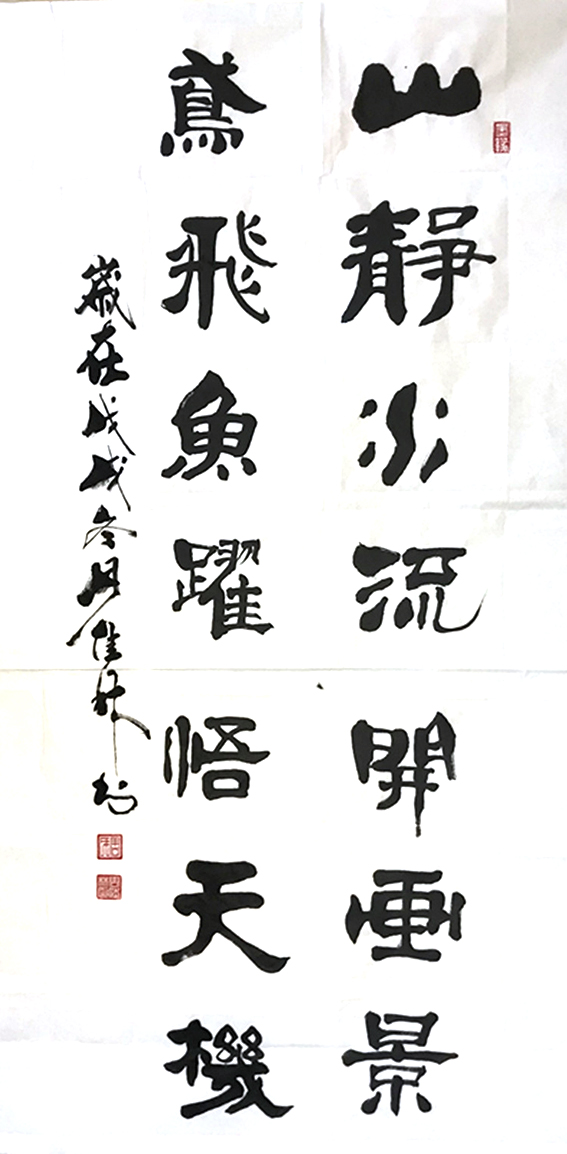 山靜水流開画景
鳶飛魚躍悟天機
歲在戊戌冬月佳林书